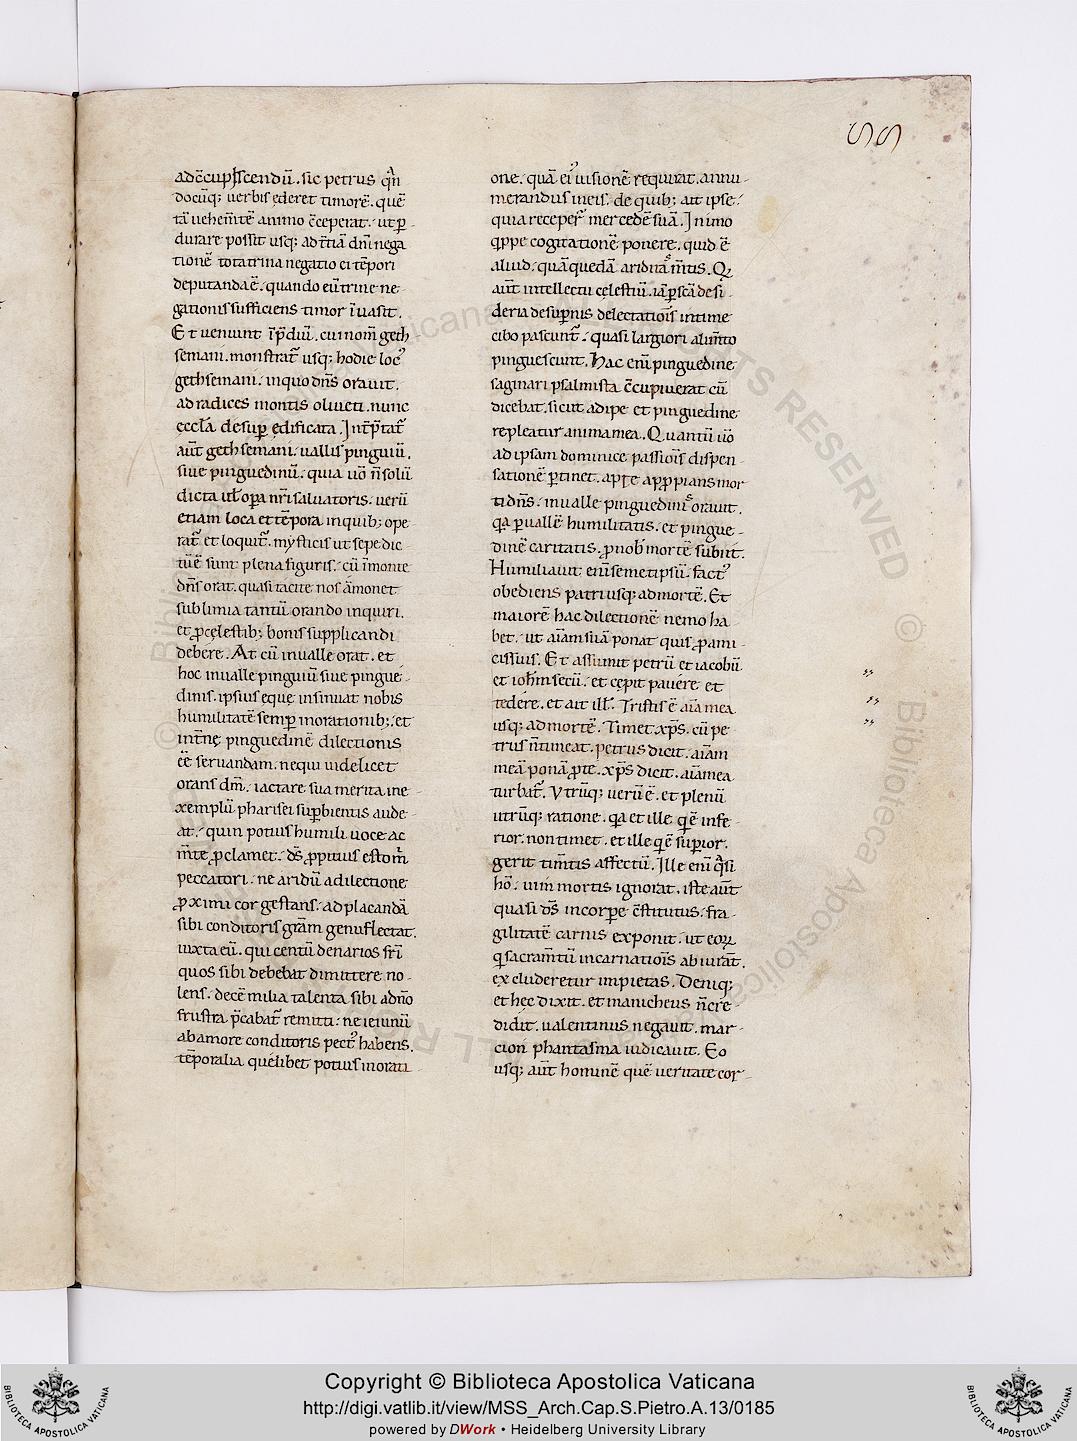 SS
adc̄cupiscendū. sic petrus q̄n
docūq; uerbis ęderet timorē. quē
tā uehem̄tē animo c̄ceperat. ut ꝑ-
durare possit usq; ad t̄tiā dm̄ nega
tionē tota trina negatio ei tēpori
deputanda ē. quando eū trine ne-
gationis sufficiens timor īuasit.
Et uenunt ī p̄diū. cui nom̄ geth
semani. monstrat̄ usq; hodie loc'
gethsemani. in quo dn̄s orauit.
ad radices montis oliueti. nunc
ęccl̄a desuꝑ ędificata. Int̄p̄tat̄
aūt gethsemani. uallis pinguiū.
siue pinguedinū. quia uō n̄ solū
dicta ut̄ oꝑa nr̄i saluatoris. uerū
etiam loca et tēpora in quib; ope
rat̄ et loquit̄. mysticis ut sepe dic-
tū ē sunt plena figuris. cū ī monte
dn̄s orat. quasi tacite nos āmonet
sublimia tantū orando inquiri.
et ꝓ cęlestib; bonis supplicandi
debere. At cū in ualle orat. et
hoc in ualle pinguiū siue pingue-
dinis. ipsius ęque insinuat nobis
humilitatē semꝑ in orationib;. et
int̄nę pinguedinē dilectionis
ēē seruandam. ne qui uidelicet
orans dm̄. iactare sua merita ine-
xemplū pharisei suꝑbientis aude-
at. quin potius humili uoce ac
m̄te ꝓclamet. d̄s ꝓpitius esto m̄
peccatori. ne aridū a dilectione
ꝓximi cor gestans. ad placandā
sibi conditoris grām genuflectat.
iuxta eū. qui centū denarios fr̄i
quos sibi debebat dimittere no-
lens. decē milia talenta sibi a dn̄o
frustra p̄cabat̄ remitti. ne ieiunū
ab amore conditoris pect' habens.
tēporalia quelibet potius in orati-
one. quā ei' uisionē requirat. annu-
merandus in eis. de quib; ait ipse.
quia receper̄ mercedē suā. In imo
q̄ppe cogitationē ponere. quid ē
aliud. quā quedā aridā m̄tis. Q
aūt intellectu cęlestiū. iā ꝑ sc̄a desi-
deria de suꝑnis delectatiōis intime
cibo pascunt̄. quasi largiori alim̄to
pinguescunt. Hac enī pinguedine
saginari psalmista c̄cupiuerat cū
dicebat. sicut adipe et pinguedine
repleatur anima mea. Quantū uō
ad ipsam dominicę passiōis dispen-
sationē ꝑtinet. apte aꝓpians mor
ti dn̄s. in ualle pinguedinis orauit.
q̄a ꝑ uallē humilitatis. et pingue-
dinē caritatis. ꝓ nob̄ mortē subiit.
Humiliauit enī semetipsū. fact'
obediens patri usq; ad mortē. Et
maiorē hac dilectionē nemo ha
bet. ut aīam suā ponat quis ꝓ ami-
cis suis. Et assūmit petrū et iacobū
et ioh̄m secū. et cępit pauére et
tedére. et ait ill̄. Tristis ē aīa mea
usq; ad mortē. Timet xp̄s. cū pe
trus n̄ timeat. petrus dicit. aīam
meā ponā ꝓ te. xp̄s dicit. aīa mea
turbat̄. Vtrūq; uerū ē. et plenū
utrūq; ratione. q̄a et ille q̄ ē infe-
rior. non timet. et ille q̄ ē suꝑior.
gerit tim̄tis affectū. Ille enī q̄si
hō. uim mortis ignorat. iste aūt
quasi d̄s in corꝑe c̄stitutus. fra-
gilitatē carnis exponit. ut eoꝝ
q̄ sacram̄tū incarnatiōis abiurāt.
excluderetur impietas. Deniq;
et hęc dixit. et manicheus n̄ cre-
didit. ualentinus negauit. mar-
cion phantasma iudicauit. Eo
usq; aūt hominē quē ueritate cor-
Copyright © Biblioteca Apostolica Vaticana
http://digi.vatlib.it/view/MSS_Arch.Cap.S.Pietro.A.13/0185
powered by DWork • Heidelberg University Library
BIBLIOTECA APOSTOLICA VATICANA
BIBLIOTECA APOSTOLICA VATICANA